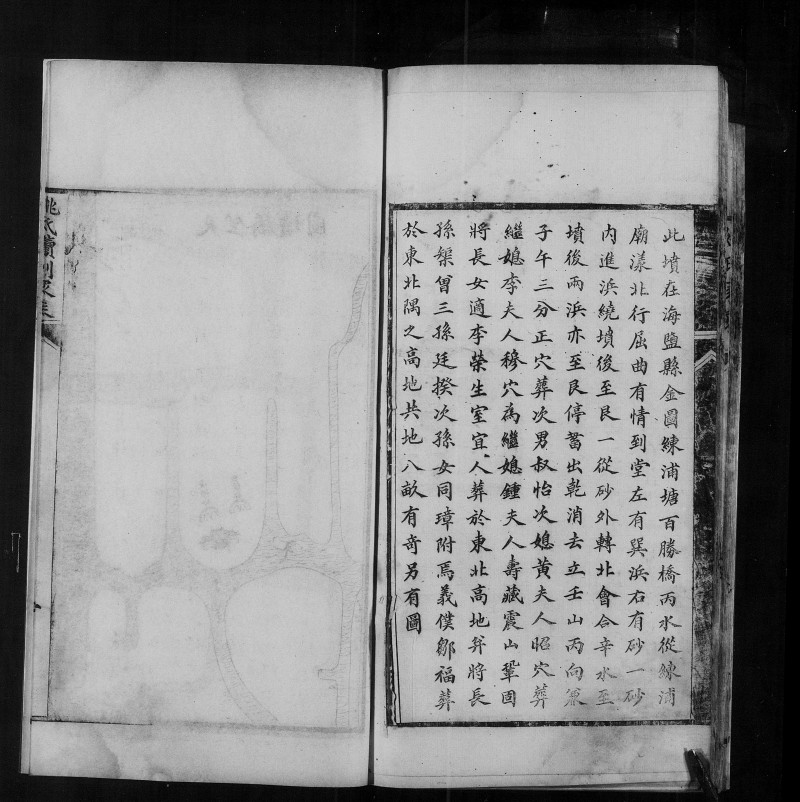 此墳在海鹽縣金圖練浦塘百勝橋丙水從練浦
廟漾北行屈曲有情到堂左有巽浜右有砂一砂
內進浜繞墳後至艮一從砂外轉北會合辛水至
墳後兩浜亦至艮停蓄出乾消去立壬山丙向兼
子午三分正穴葬次男叔怡次媳黄夫人昭穴葬
繼媳李夫人穆穴為繼媳鍾夫人壽藏震山鞏固
將長女適李榮生室宜人葬於東北高地弁將長
孫榘曾三孫廷揆次孫女同璋附焉義僕鄒福葬
於東北隅之高地共地八畝有奇另有圖
姚氏續刊家乘